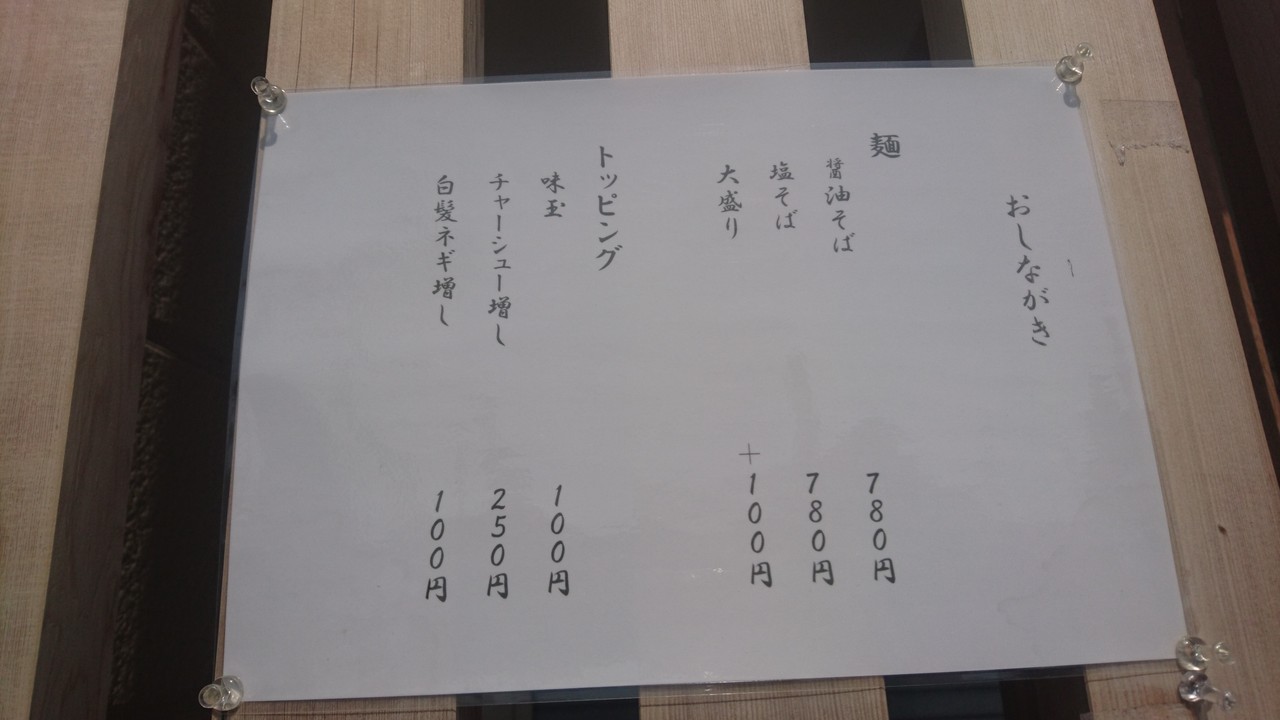 おしながき
麺
醤油そば 780円
塩そば 780円
大盛り +100円
トッピング
味玉 100円
チャーシュー増し 250円
白髪ネギ増し 100円